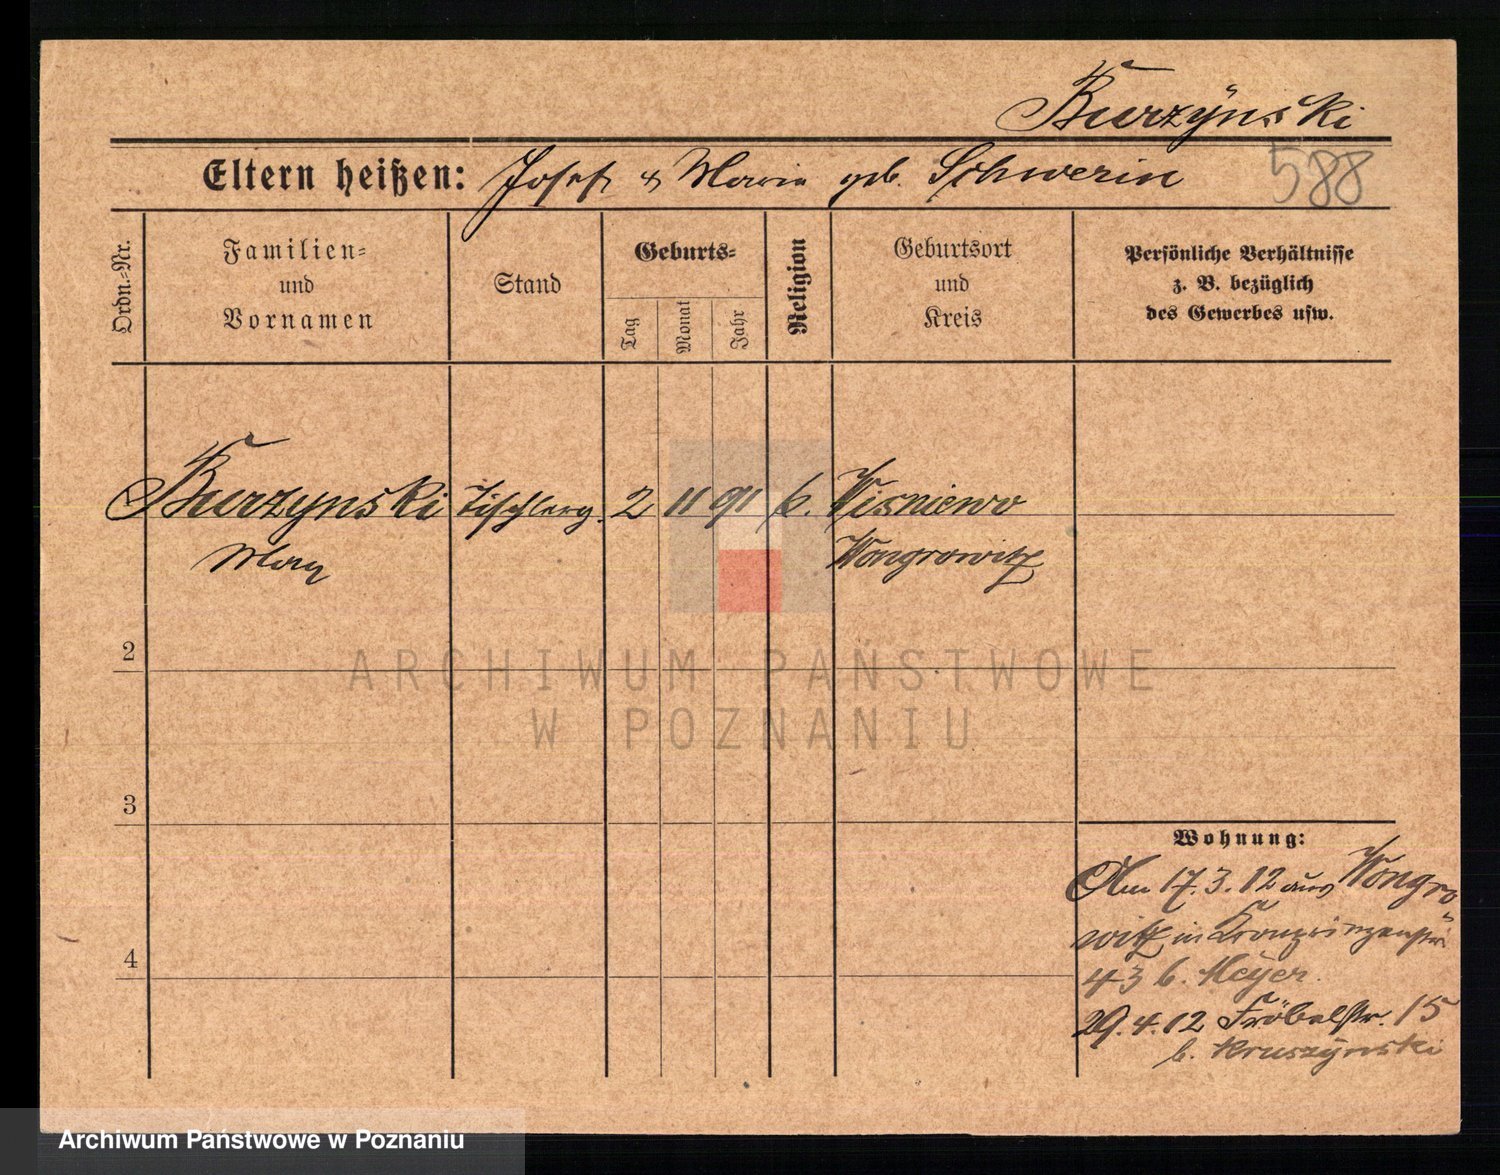 Burzÿnski
588
Eltern heißen: Josef & Marie geb. Schwerin
Ordn.-Nr.
Familien-
und
Vornamen
Stand
Geburts-
Tag
Monat
Jahr
Religion
Geburtsort
und
Kreis
Persönliche Verhältnisse
z. B. bezüglich
des Gewerbes usw.
Burzynski Tischlerg. 2 11 91 k. Wisniewo
Max Wongrowitz
2
3
4
ARCHIWUM PAŃSTWOWE
W POZNANIU
Wohnung:
Am 17.3.12 aus Wongro
witz in Kronprinzenstr
43 b. Meÿer.
29.4.12 Fröbelstr. 15
b. Kruszÿnski
Archiwum Państwowe w Poznaniu